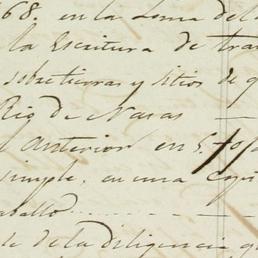 768. en la Loma del
la Escritura de tran
sobre tierras y sitios de g
Rio de Nasas
l anterior en 5. foja
simple, en una Cop
caballo
de la diligencia q